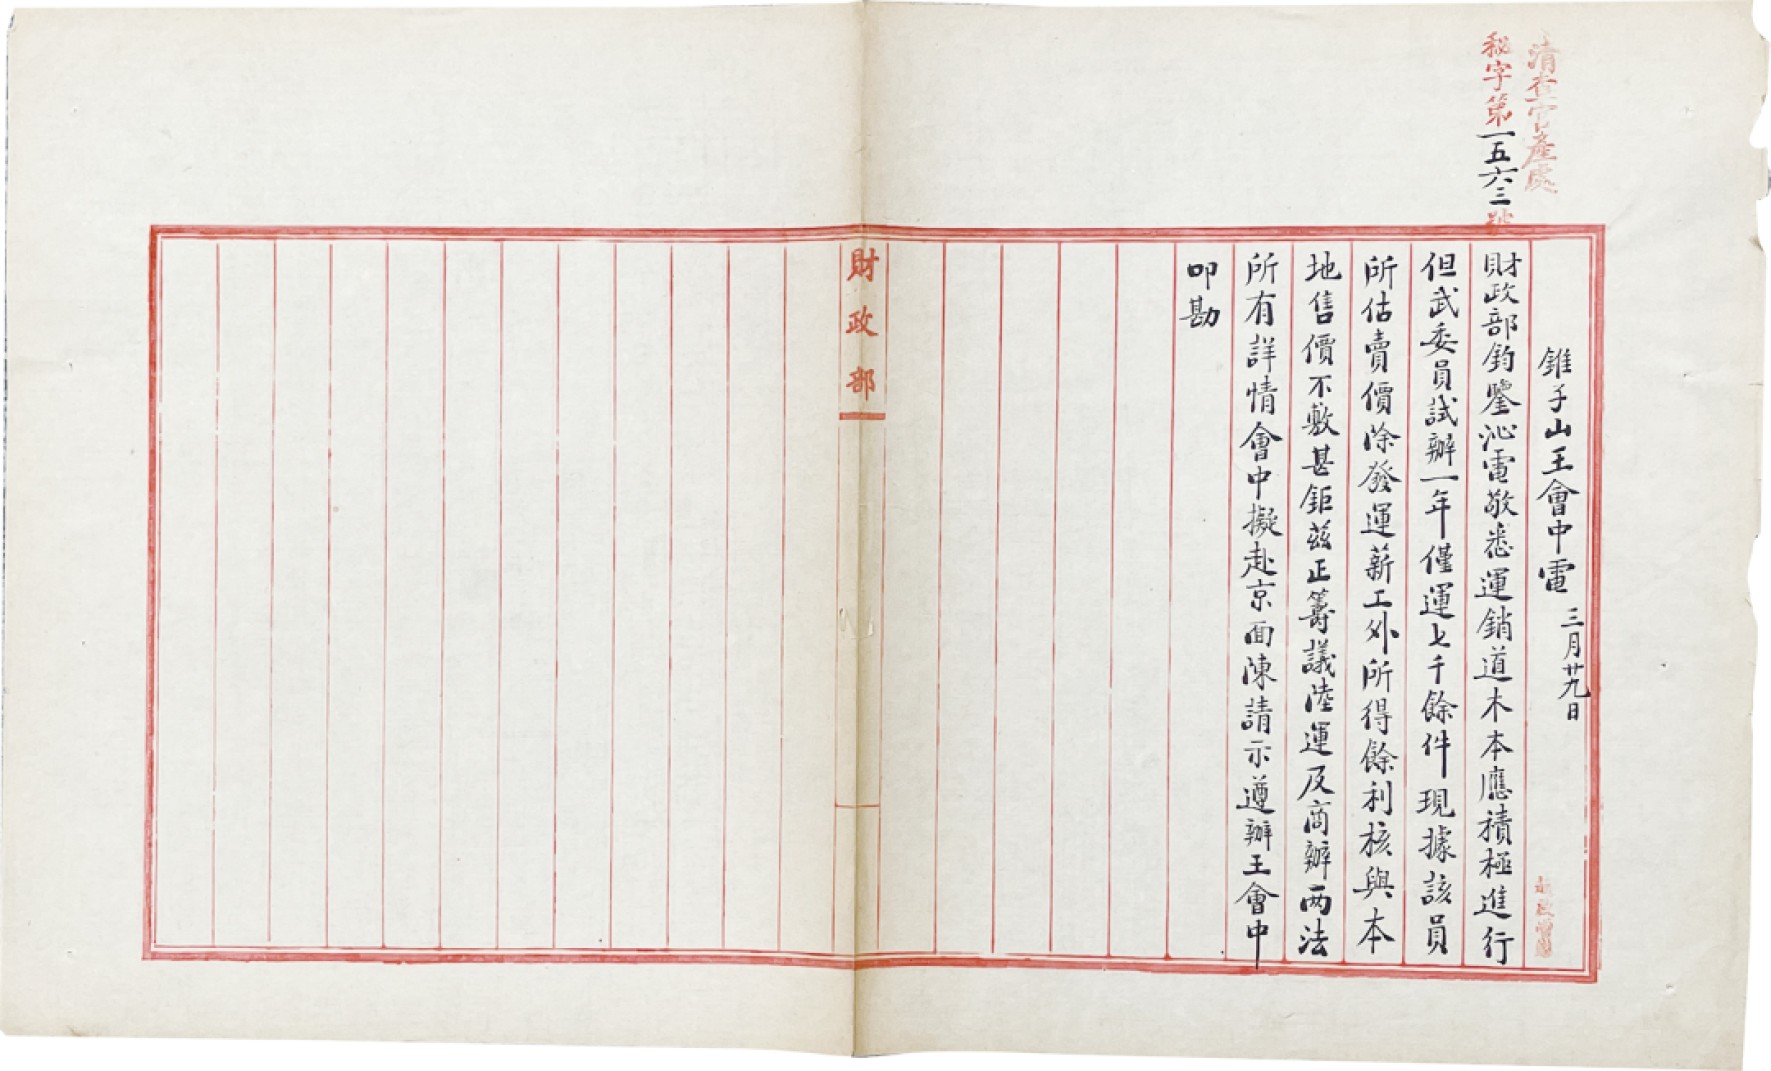 清查官產處
秘字第一五六三號
錐子山王會中電 三月廿九日
財政部鈞鑒沁電敬悉運銷道木本應積極進行
但武委員試辦一年僅運七千餘件現據該員
所估賣價除發運薪工外所得餘利核與本
地售價不敷甚鉅茲正籌議陸運及商辦两法
所有詳情會中擬赴京面陳請示遵辦王會中
叩勘
財政部